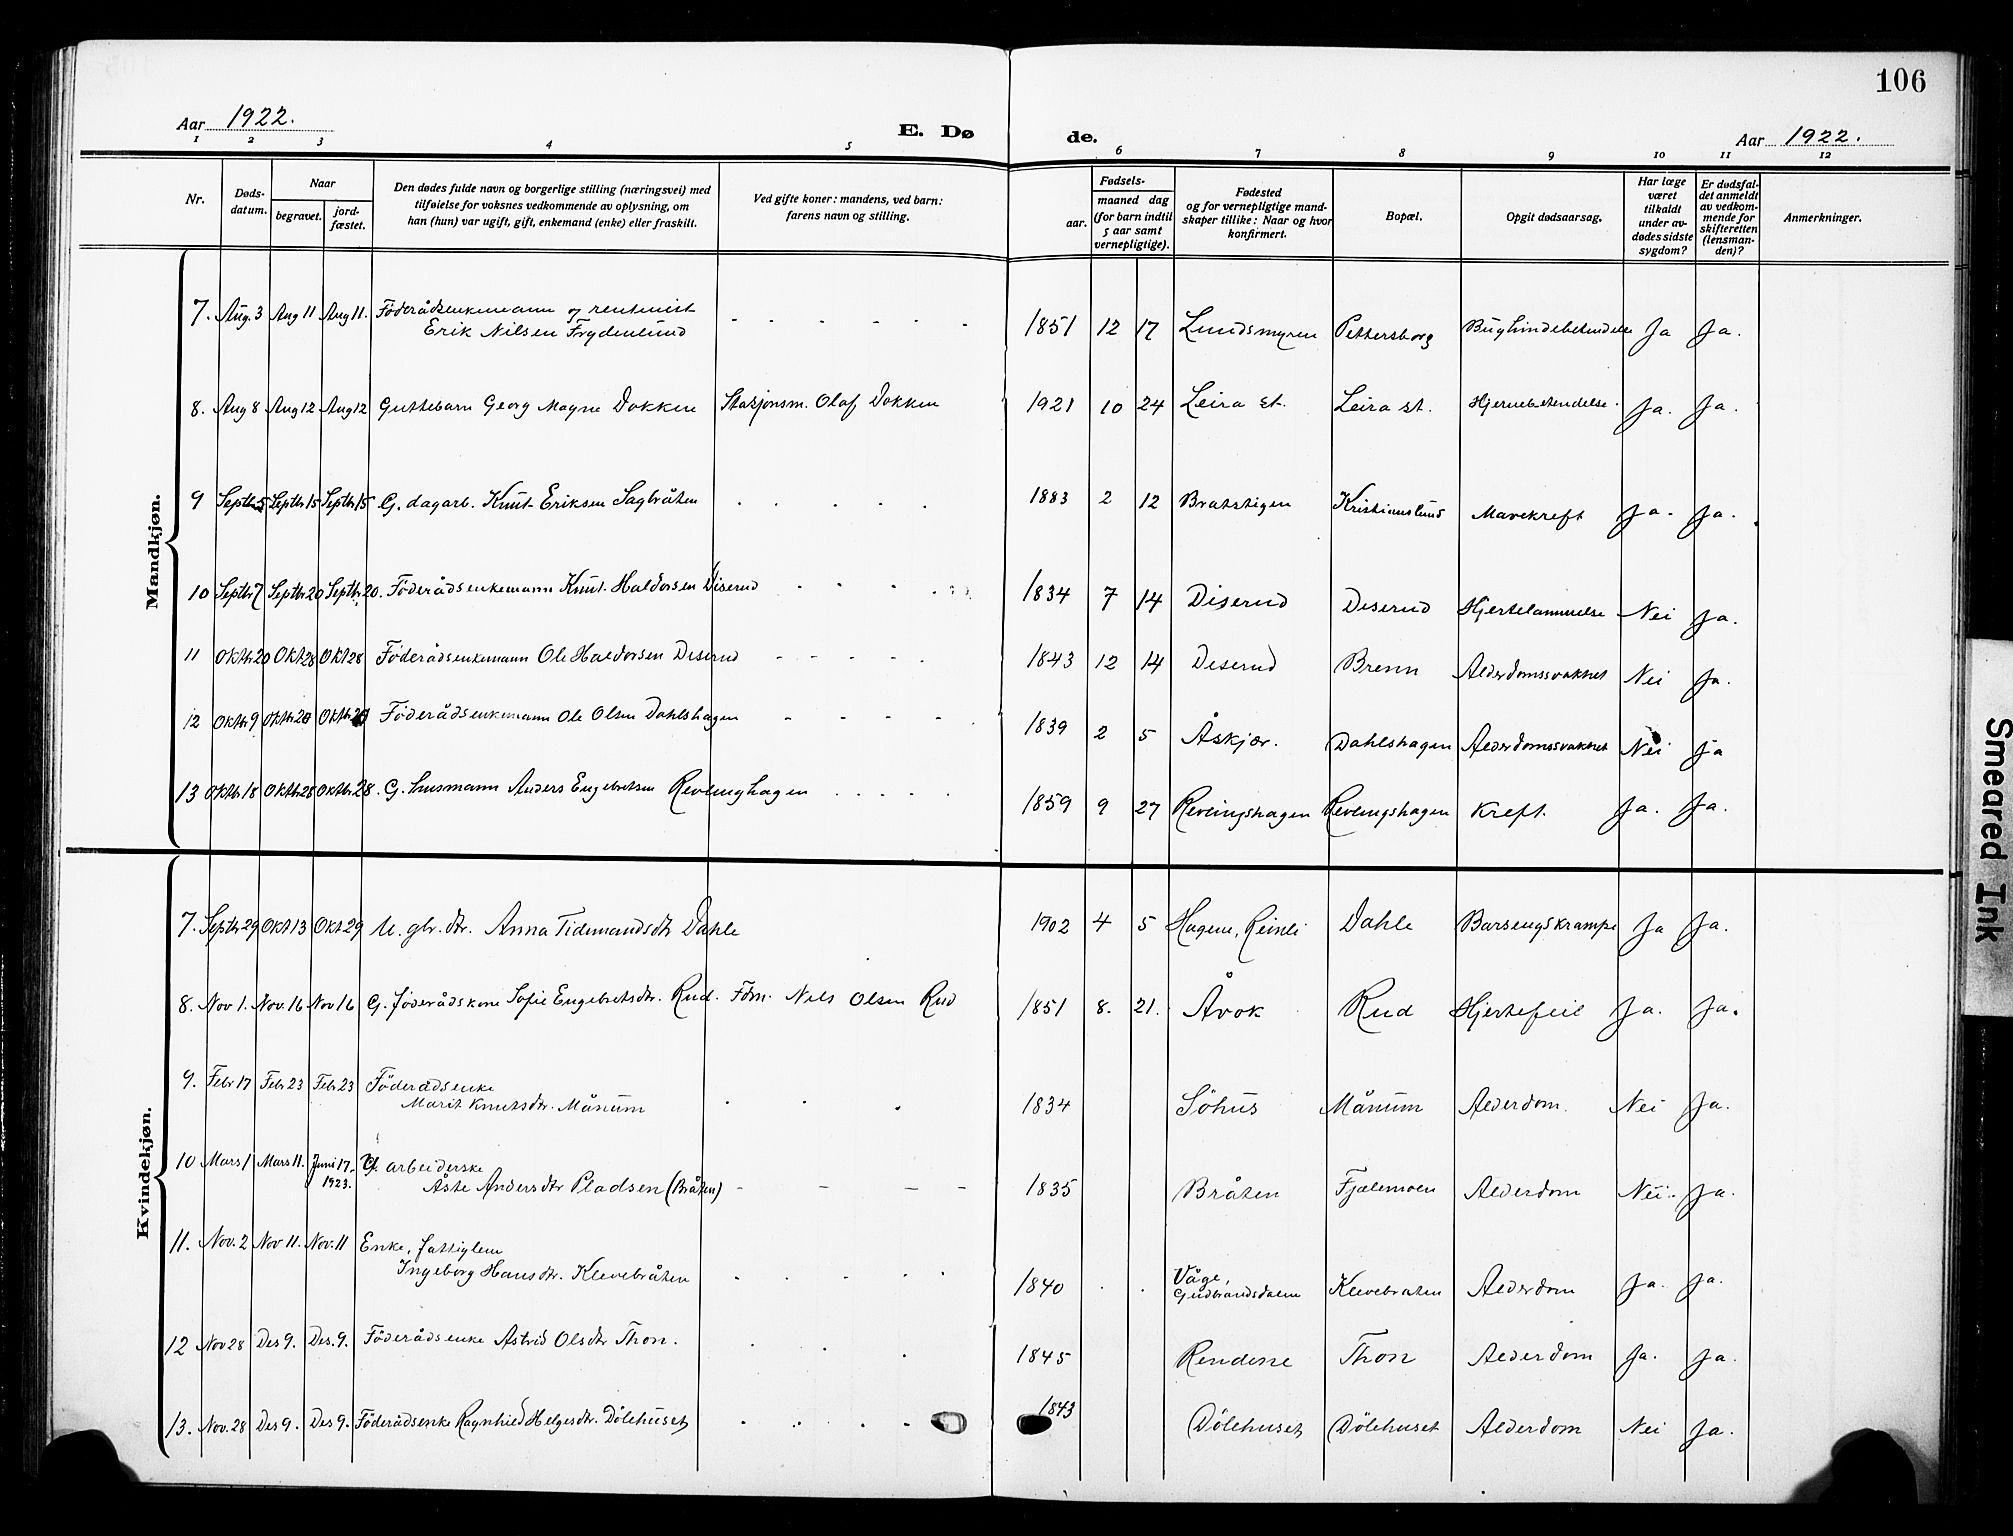 106
Aar 1922.
E. Dø de.
Aar 1922.
1 2 3 4 5 6 7 8 9 10 11 12
Nr.
Døds-
datum.
Naar
begravet.
jord-
fæstet.
Den dødes fulde navn og borgerlige stilling (næringsvei) med
tilføielse for voksnes vedkommende av oplysning, om
han (hun) var ugift, gift, enkemand (enke) eller fraskilt.
Ved gifte koner: mandens, ved barn:
farens navn og stilling.
Fødsels-
aar.
maaned dag
(for barn indtil
5 aar samt
vernepligtige).
Fødested
og for vernepligtige mand-
skaper tillike: Naar og hvor
konfirmert.
Bopæl.
Opgit dødsaarsag.
Har læge
været
tilkaldt
under av-
dødes sidste
sygdom?
Er dødsfal-
det anmeldt
av vedkom-
mende for
skifteretten
(lensman-
den)?
Anmerkninger.
Mandkjøn.
7. Aug. 3 Aug 11 Aug 11. Föderådsenkemann og rentenist
Erik Nilsen Frydenlund - - - - - - 1851 12 17 Lundsmyren Pettersborg Bughindebetendelse Ja Ja.
8. Aug 8 Aug 12 Aug 12 Guttebarn Georg Magne Dokken Stasjonsm. Olaf Dokken 1921 10 24 Leira st. Leira st. Hjernebetendelse. Ja. Ja.
9 Septb 5 Septb 15 Septb 15 G. dagarb. Knut Eriksen Sagbråten 1883 2 12 Bratstigen Kristianslund Mavekreft Ja. Ja.
10 Septb 7 Septb 20 Septb 20. Föderådsenkemann Knut Haldorsen Diserud 1834 7 14 Diserud Diserud Hjertelammelse Nei Ja.
11 Oktb 20 Okt 28 Okt 28 Föderådsenkemann Ole Haldorsen Diserud - - - - - 1843 12 14 Diserud Brenn Alderdomssvakhet Nei Ja.
12 Oktb 9 Oktb 20 Oktb 20 Föderådsenkemann Ole Olsen Dahlshagen - - - - 1839 2 5 Åskjær. Dahlshagen Alderdomssvakhet Nei Ja
13 Oktb 18 Oktb 28 Oktb 28. G. husmann Anders Engebretsen Revlinghagen 1859 9 27 Revlingshagen Revlingshagen Kreft. Ja. Ja.
Kvindekjøn.
7. Septb 29 Okt 13 Okt 29 U. gbr. dtr. Anna Tidemandsdtr Dahle 1902 4 5 Hagene, Reinli Dahle Barsengskrampe Ja Ja.
8. Nov 1. Nov. 16 Nov 16 G. föderådskone Sofie Engebretsdtr. Rud. Fdm. Nils Olsen Rud 1851 8. 21. Åvok Rud Hjertefeil Ja. Ja.
9. Febr 17 Febr 23 Febr 23 Föderådsenke
Marit Knutsdtr. Månum 1834 Söhus Månum Alderdom. Nei Ja.
10 Mars 1 Mars 11. Juni 17.
1923. U. arbeiderske
Åste Andersdtr Pladsen (Bråten) - - - - 1835 Bråten Fjælemoen Alderdom Nei. Ja.
11. Nov. 2 Nov 11. Nov. 11 Enke, fattiglem
Ingeborg Hansdtr. Klevebråten 1840 Våge,
Gudbrandsdalen Klevebraten Alderdom Ja. Ja.
12 Nov 28 Des 9. Des. 9. Föderådsenke Astrid Olsdtr Thon. 1845 Rendene Thon Alderdom Ja. Ja.
13. Nov. 28 Des 9. Des 9. Föderådsenke Ragnhild Helgesdtr. Dölehuset 1843 Dölehuset Dölehuset Alderdom Nei Ja.
Smeared Ink